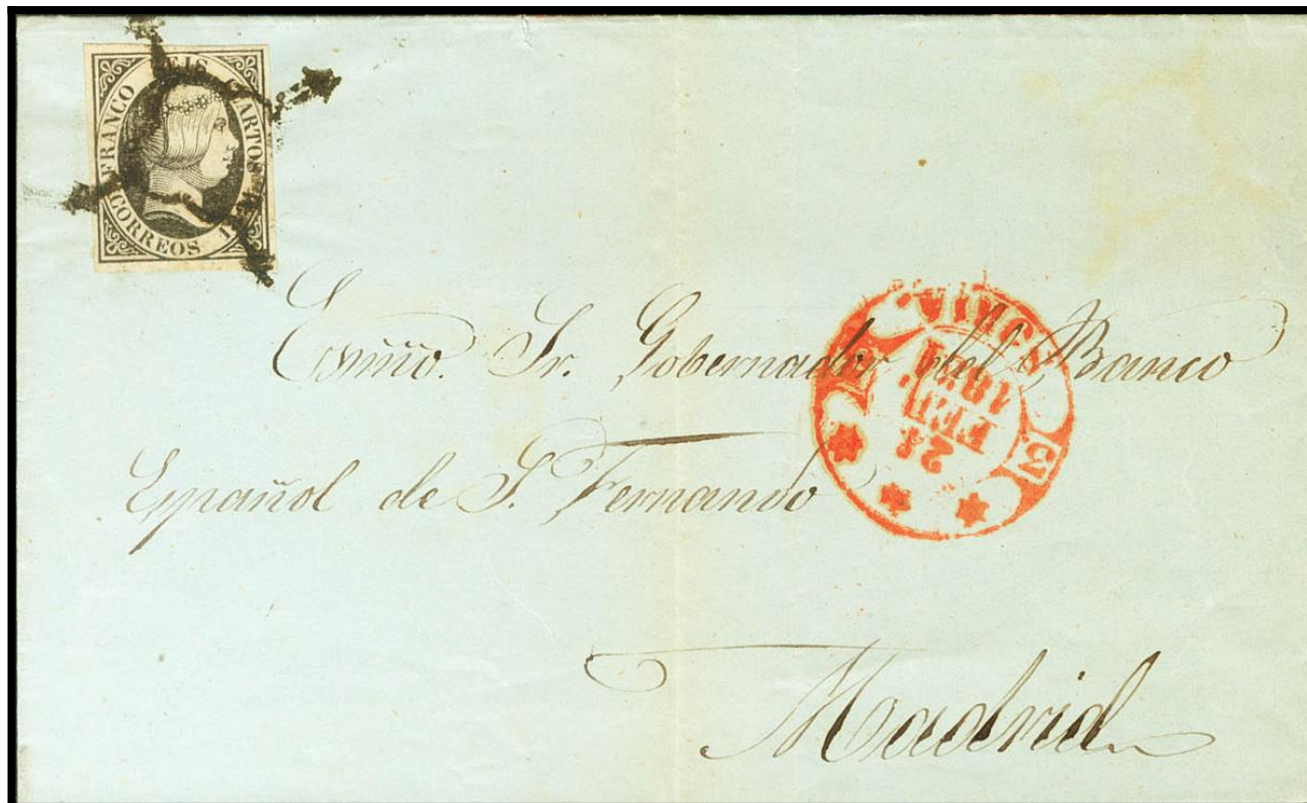 FRANCO SEIS CUARTOS
CORREOS
FEB.
Exmo. Sr. Gobernador del Banco
Español de S. Fernando
Madrid